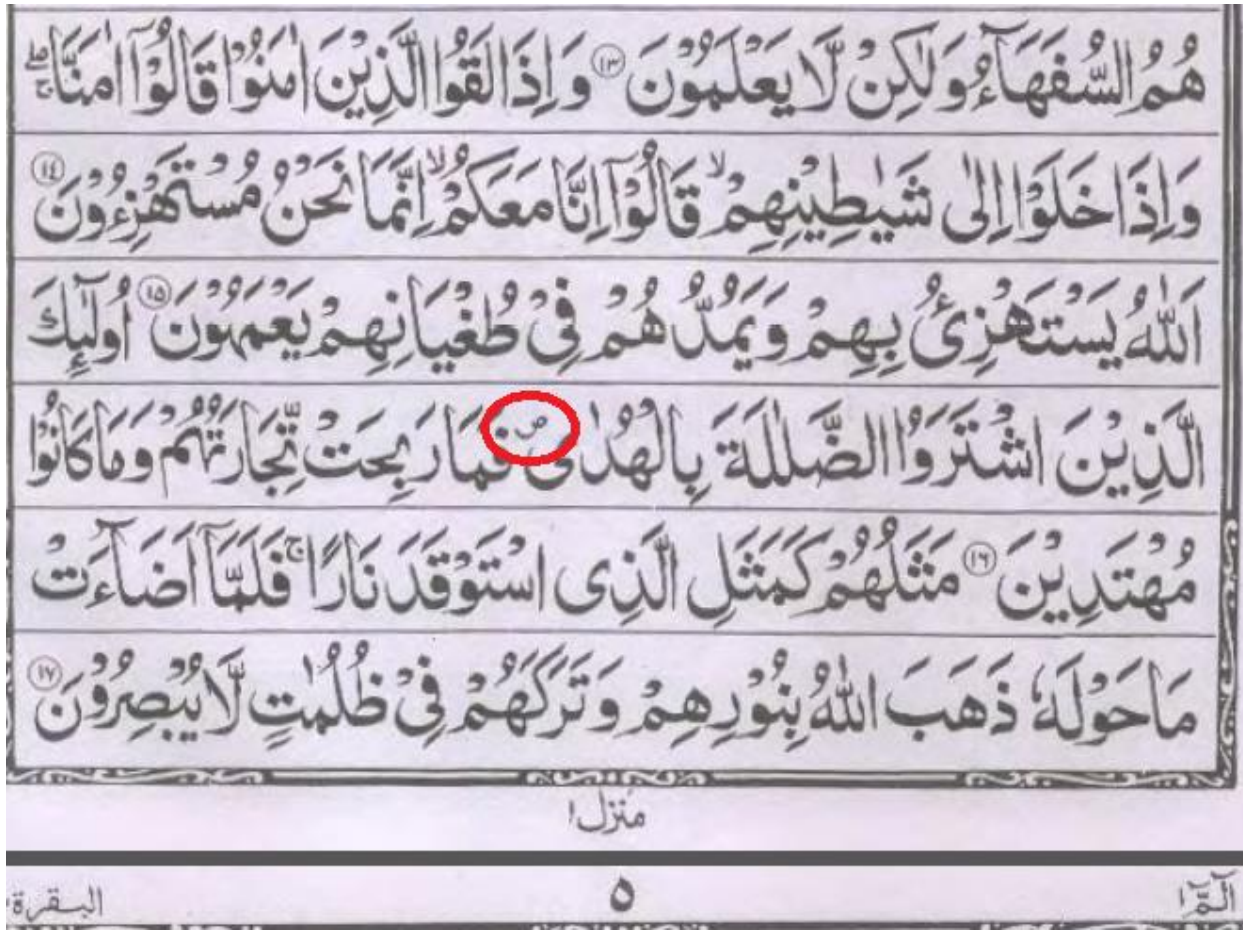 هُمُ السُّفَهَآءُ وَلٰكِنْ لَّا يَعْلَمُوْنَ ﴿۱۳﴾ وَ اِذَا لَقُوا الَّذِيْنَ اٰمَنُوْا قَالُوْٓا اٰمَنَّا
وَاِذَا خَلَوْا اِلٰى شَيٰطِيْنِهِمْ ۙ قَالُوْٓا اِنَّا مَعَكُمْ ۙ اِنَّمَا نَحْنُ مُسْتَهْزِءُوْنَ ﴿۱٤﴾
اَللّٰهُ يَسْتَهْزِئُ بِهِمْ وَيَمُدُّهُمْ فِىْ طُغْيَانِهِمْ يَعْمَهُوْنَ ﴿۱۵﴾ اُولٰٓئِكَ
الَّذِيْنَ اشْتَرَوُا الضَّلٰلَةَ بِالْهُدٰى ص فَمَا رَبِحَتْ تِّجَارَتُهُمْ وَمَا كَانُوْا
مُهْتَدِيْنَ ﴿۱۶﴾ مَثَلُهُمْ كَمَثَلِ الَّذِى اسْتَوْقَدَ نَارًا ۚ فَلَمَّآ اَضَآءَتْ
مَا حَوْلَهٗ ذَهَبَ اللّٰهُ بِنُوْرِهِمْ وَتَرَكَهُمْ فِىْ ظُلُمٰتٍ لَّا يُبْصِرُوْنَ ﴿۱۷﴾
مَنزل ۱
الٓمّٓ ۱ ۵ البقرة